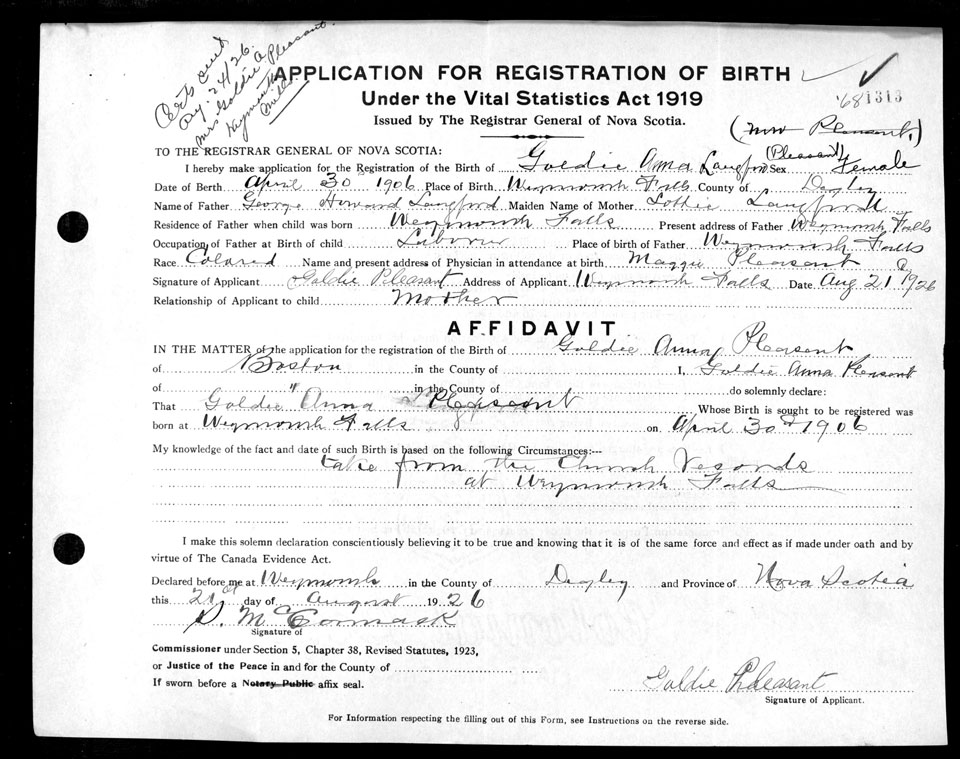 Certs sent
Aug. 24/26.
Mrs. Goldie A Pleasant
Weymouth
APPLICATION FOR REGISTRATION OF BIRTH
Under the Vital Statistics Act 1919
'681313
Issued by The Registrar General of Nova Scotia.
(now Pleasant.)
TO THE REGISTRAR GENERAL OF NOVA SCOTIA: (Pleasant)
I hereby make application for the Registration of the Birth of Goldie Anna Langford Sex Female
Date of Berth April 30 1906 Place of Birth Weymouth Falls County of Digby
Name of Father George Howard Langford Maiden Name of Mother Lottie Langford
Residence of Father when child was born Weymouth Falls Present address of Father Weymouth Falls
Occupation of Father at Birth of child Laborer Place of birth of Father Weymouth Falls
Race Colored Name and present address of Physician in attendance at birth Maggie Pleasant
Signature of Applicant Goldie Pleasant Address of Applicant Weymouth Falls Date Aug 21 1926
Relationship of Applicant to child Mother
AFFIDAVIT
IN THE MATTER of the application for the registration of the Birth of Goldie Anna Pleasant
of Boston in the County of I, Goldie Anna Pleasant
of " in the County of do solemnly declare:
That Goldie Anna Pleasant Whose Birth is sought to be registered was
born at Weymouth Falls on April 30th 1906
My knowledge of the fact and date of such Birth is based on the following Circumstances:---
take from the Church Records
at Weymouth Falls
I make this solemn declaration conscientiously believing it to be true and knowing that it is of the same force and effect as if made under oath and by
virtue of The Canada Evidence Act.
Declared before me at Weymouth in the County of Digby and Province of Nova Scotia
this 21st day of August 1926
S. McCormack
Signature of
Commissioner under Section 5, Chapter 38, Revised Statutes, 1923,
or Justice of the Peace in and for the County of
If sworn before a Notary Public affix seal.
Goldie Pleasant
Signature of Applicant.
For Information respecting the filling out of this Form, see Instructions on the reverse side.